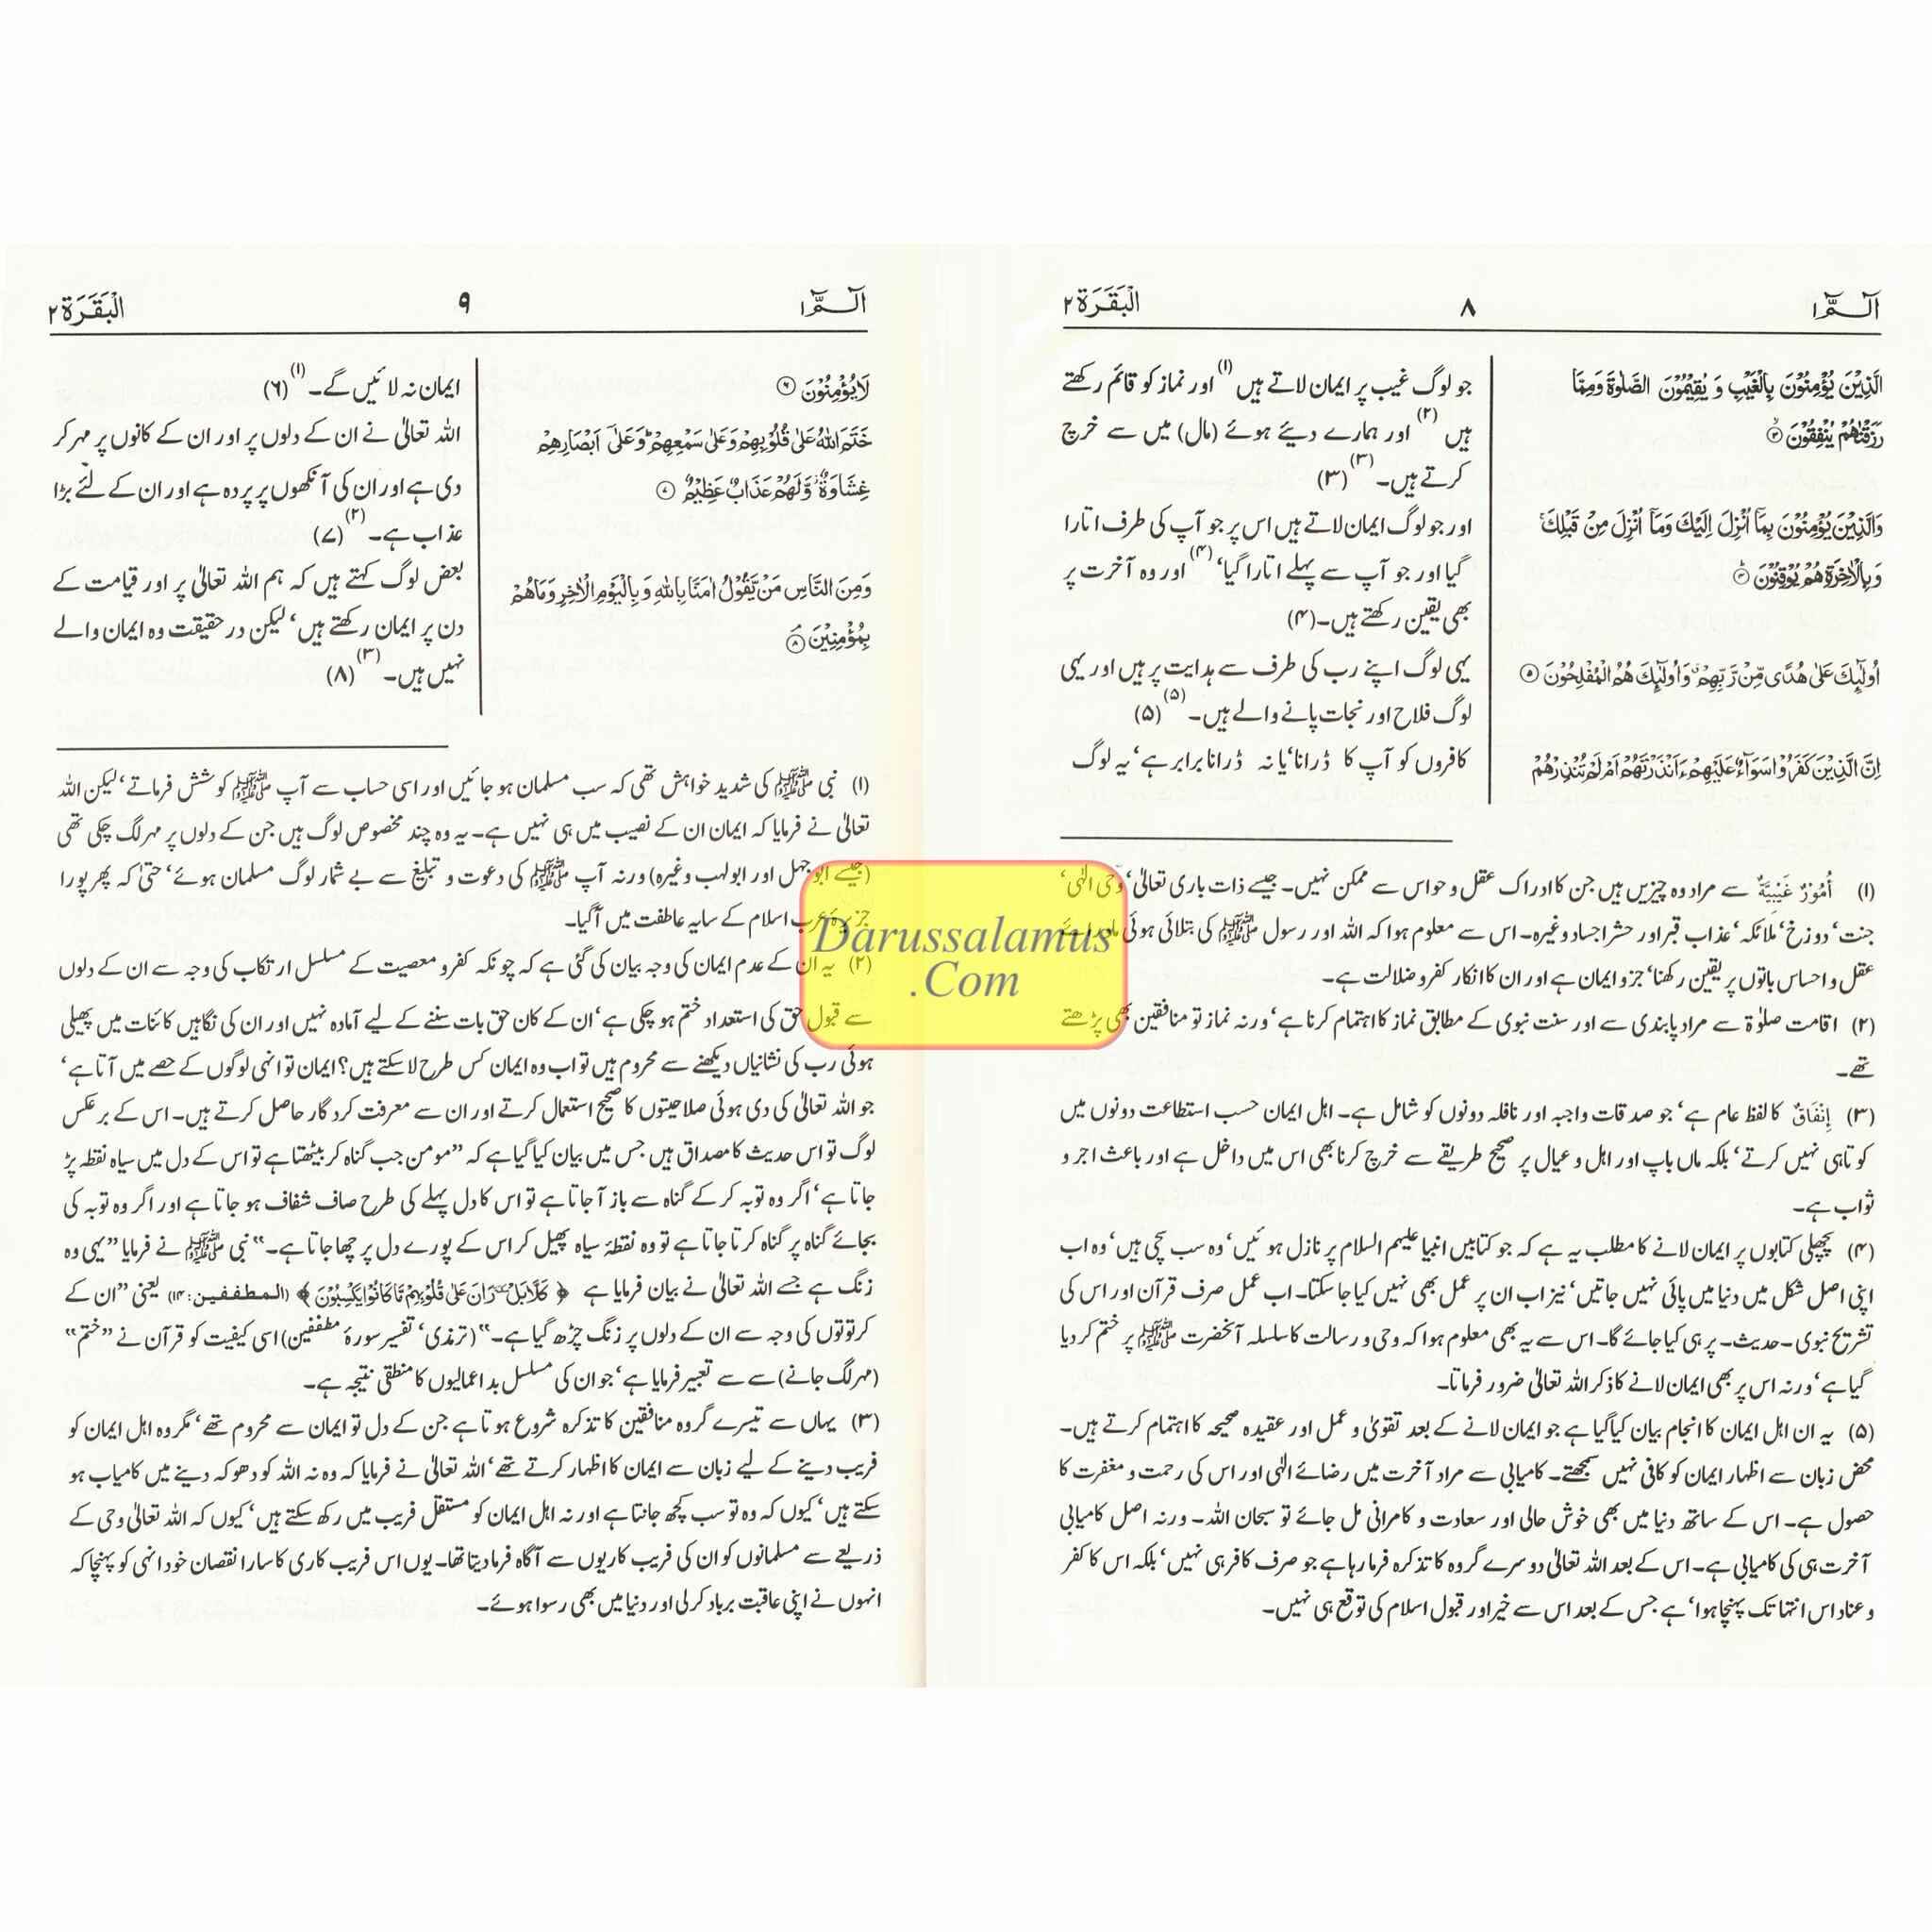 الٓـمّٓ ۱
۸
الْبَقَرَة ۲
الَّذِيْنَ يُؤْمِنُوْنَ بِالْغَيْبِ وَ يُقِيْمُوْنَ الصَّلٰوةَ وَمِمَّا
رَزَقْنٰهُمْ يُنْفِقُوْنَ ۝۳
وَالَّذِيْنَ يُؤْمِنُوْنَ بِمَآ اُنْزِلَ اِلَيْكَ وَمَآ اُنْزِلَ مِنْ قَبْلِكَ
وَبِالْاٰخِرَةِ هُمْ يُوْقِنُوْنَ ۝۴
اُولٰٓئِكَ عَلٰى هُدًى مِّنْ رَّبِّهِمْ وَاُولٰٓئِكَ هُمُ الْمُفْلِحُوْنَ ۝۵
اِنَّ الَّذِيْنَ كَفَرُوْا سَوَآءٌ عَلَيْهِمْ ءَاَنْذَرْتَهُمْ اَمْ لَمْ تُنْذِرْهُمْ
جو لوگ غیب پر ایمان لاتے ہیں (۱) اور نماز کو قائم رکھتے
ہیں (۲) اور ہمارے دیئے ہوئے (مال) میں سے خرچ
کرتے ہیں۔ (۳) (۳)
اور جو لوگ ایمان لاتے ہیں اس پر جو آپ کی طرف اتارا
گیا اور جو آپ سے پہلے اتارا گیا، (۴) اور وہ آخرت پر
بھی یقین رکھتے ہیں۔ (۴)
یہی لوگ اپنے رب کی طرف سے ہدایت پر ہیں اور یہی
لوگ فلاح اور نجات پانے والے ہیں۔ (۵) (۵)
کافروں کو آپ کا ڈرانا، یا نہ ڈرانا برابر ہے، یہ لوگ
(۱) اُمُوْرٌ غَيْبِيَّةٌ سے مراد وہ چیزیں ہیں جن کا ادراک عقل و حواس سے ممکن نہیں۔ جیسے ذات باری تعالیٰ، وحی الٰہی،
جنت، دوزخ، ملائکہ، عذاب قبر اور حشر اجساد وغیرہ۔ اس سے معلوم ہوا کہ اللہ اور رسول ﷺ کی بتلائی ہوئی ماورائے
عقل و احساس باتوں پر یقین رکھنا، جزو ایمان ہے اور ان کا انکار کفر و ضلالت ہے۔
(۲) اقامت صلوٰة سے مراد پابندی سے اور سنت نبوی کے مطابق نماز کا اہتمام کرنا ہے، ورنہ نماز تو منافقین بھی پڑھتے
تھے۔
(۳) اِنْفَاقٌ کا لفظ عام ہے، جو صدقات واجبہ اور نافلہ دونوں کو شامل ہے۔ اہل ایمان حسب استطاعت دونوں میں
کوتاہی نہیں کرتے، بلکہ ماں باپ اور اہل و عیال پر صحیح طریقے سے خرچ کرنا بھی اس میں داخل ہے اور باعث اجر و
ثواب ہے۔
(۴) پچھلی کتابوں پر ایمان لانے کا مطلب یہ ہے کہ جو کتابیں انبیا علیہم السلام پر نازل ہوئیں، وہ سب سچی ہیں، وہ اب
اپنی اصل شکل میں دنیا میں پائی نہیں جاتیں، نیز اب ان پر عمل بھی نہیں کیا جا سکتا۔ اب عمل صرف قرآن اور اس کی
تشریح نبوی۔ حدیث۔ پر ہی کیا جائے گا۔ اس سے یہ بھی معلوم ہوا کہ وحی و رسالت کا سلسلہ آنحضرت ﷺ پر ختم کر دیا
گیا ہے، ورنہ اس پر بھی ایمان لانے کا ذکر اللہ تعالیٰ ضرور فرماتا۔
(۵) یہ ان اہل ایمان کا انجام بیان کیا گیا ہے جو ایمان لانے کے بعد تقویٰ و عمل اور عقیدہ صحیحہ کا اہتمام کرتے ہیں۔
محض زبان سے اظہار ایمان کو کافی نہیں سمجھتے۔ کامیابی سے مراد آخرت میں رضائے الٰہی اور اس کی رحمت و مغفرت کا
حصول ہے۔ اس کے ساتھ دنیا میں بھی خوش حالی اور سعادت و کامرانی مل جائے تو سبحان اللہ۔ ورنہ اصل کامیابی
آخرت ہی کی کامیابی ہے۔ اس کے بعد اللہ تعالیٰ دوسرے گروہ کا تذکرہ فرما رہا ہے جو صرف کافر ہی نہیں، بلکہ اس کا کفر
و عناد اس انتہا تک پہنچا ہوا، ہے جس کے بعد اس سے خیر اور قبول اسلام کی توقع ہی نہیں۔
الٓـمّٓ ۱
۹
الْبَقَرَة ۲
لَا يُؤْمِنُوْنَ ۝۶
خَتَمَ اللهُ عَلٰى قُلُوْبِهِمْ وَعَلٰى سَمْعِهِمْ وَعَلٰٓى اَبْصَارِهِمْ
غِشَاوَةٌ وَّلَهُمْ عَذَابٌ عَظِيْمٌ ۝۷
وَمِنَ النَّاسِ مَنْ يَّقُوْلُ اٰمَنَّا بِاللهِ وَبِالْيَوْمِ الْاٰخِرِ وَمَا هُمْ
بِمُؤْمِنِيْنَ ۝۸
ایمان نہ لائیں گے۔ (۱) (۶)
اللہ تعالیٰ نے ان کے دلوں پر اور ان کے کانوں پر مہر کر
دی ہے اور ان کی آنکھوں پر پردہ ہے اور ان کے لئے بڑا
عذاب ہے۔ (۲) (۷)
بعض لوگ کہتے ہیں کہ ہم اللہ تعالیٰ پر اور قیامت کے
دن پر ایمان رکھتے ہیں، لیکن درحقیقت وہ ایمان والے
نہیں ہیں۔ (۳) (۸)
(۱) نبی ﷺ کی شدید خواہش تھی کہ سب مسلمان ہو جائیں اور اسی حساب سے آپ ﷺ کوشش فرماتے، لیکن اللہ
تعالیٰ نے فرمایا کہ ایمان ان کے نصیب میں ہی نہیں ہے۔ یہ وہ چند مخصوص لوگ ہیں جن کے دلوں پر مہر لگ چکی تھی
(جیسے ابوجہل اور ابولہب وغیرہ) ورنہ آپ ﷺ کی دعوت و تبلیغ سے بے شمار لوگ مسلمان ہوئے، حتیٰ کہ پھر پورا
جزیرۂ عرب اسلام کے سایہ عاطفت میں آ گیا۔
(۲) یہ ان کے عدم ایمان کی وجہ بیان کی گئی ہے کہ چونکہ کفر و معصیت کے مسلسل ارتکاب کی وجہ سے ان کے دلوں
سے قبول حق کی استعداد ختم ہو چکی ہے، ان کے کان حق بات سننے کے لیے آمادہ نہیں اور ان کی نگاہیں کائنات میں پھیلی
ہوئی رب کی نشانیاں دیکھنے سے محروم ہیں تو اب وہ ایمان کس طرح لا سکتے ہیں؟ ایمان تو انہی لوگوں کے حصے میں آتا ہے،
جو اللہ تعالیٰ کی دی ہوئی صلاحیتوں کا صحیح استعمال کرتے اور ان سے معرفت کردگار حاصل کرتے ہیں۔ اس کے برعکس
لوگ تو اس حدیث کا مصداق ہیں جس میں بیان کیا گیا ہے کہ ”مومن جب گناہ کر بیٹھتا ہے تو اس کے دل میں سیاہ نقطہ پڑ
جاتا ہے، اگر وہ توبہ کر کے گناہ سے باز آ جاتا ہے تو اس کا دل پہلے کی طرح صاف شفاف ہو جاتا ہے اور اگر وہ توبہ کی
بجائے گناہ پر گناہ کرتا جاتا ہے تو وہ نقطۂ سیاہ پھیل کر اس کے پورے دل پر چھا جاتا ہے۔“ نبی ﷺ نے فرمایا ”یہی وہ
زنگ ہے جسے اللہ تعالیٰ نے بیان فرمایا ہے ﴿ كَلَّا بَلْ ۜ رَانَ عَلٰى قُلُوْبِهِمْ مَّا كَانُوْا يَكْسِبُوْنَ ﴾ (المطففين: ۱۴) یعنی ”ان کے
کرتوتوں کی وجہ سے ان کے دلوں پر زنگ چڑھ گیا ہے۔“ (ترمذی، تفسیر سورۂ مطففین) اسی کیفیت کو قرآن نے ”ختم“
(مہر لگ جانے) سے سے تعبیر فرمایا ہے، جو ان کی مسلسل بداعمالیوں کا منطقی نتیجہ ہے۔
(۳) یہاں سے تیسرے گروہ منافقین کا تذکرہ شروع ہوتا ہے جن کے دل تو ایمان سے محروم تھے، مگر وہ اہل ایمان کو
فریب دینے کے لیے زبان سے ایمان کا اظہار کرتے تھے، اللہ تعالیٰ نے فرمایا کہ وہ نہ اللہ کو دھوکہ دینے میں کامیاب ہو
سکتے ہیں، کیوں کہ وہ تو سب کچھ جانتا ہے اور نہ اہل ایمان کو مستقل فریب میں رکھ سکتے ہیں، کیوں کہ اللہ تعالیٰ وحی کے
ذریعے سے مسلمانوں کو ان کی فریب کاریوں سے آگاہ فرما دیتا تھا۔ یوں اس فریب کاری کا سارا نقصان خود انہی کو پہنچا کہ
انہوں نے اپنی عاقبت برباد کر لی اور دنیا میں بھی رسوا ہوئے۔
Darussalamus
.Com